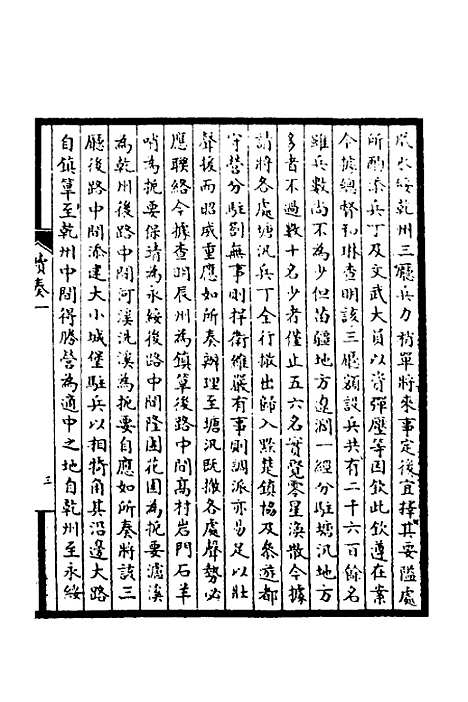 凰永綏乾州三廳兵力稍單將來事定後宜擇其要隘處
所酌添兵丁及文武大員以資彈壓等因欽此欽遵在案
今據總督和琳查明該三廳額設兵共有二千六百餘名
雖兵數尚不為少但苗疆地方遼濶一經分駐塘汛地方
多者不過數十名少者僅止五六名實覺零星渙散今據
請將各處塘汛兵丁全行撤出歸入點楚鎮協及叅遊都
守營分駐劄無事則捍衛維嚴有事則調派亦易足以壯
聲援而昭威重應如所奏辦理至塘汛既撤各處聲勢必
應聯絡今據查明辰州為鎮筸後路中間髙村岩門石羊
哨為扼要保靖為永綏後路中間隆團花園為扼要瀘溪
為乾州後路中間河溪洗溪為扼要自應如所奏將該三
廳後路中間添建大小城堡駐兵以相犄角其沿邊大路
自鎮筸至乾州中間得勝營為適中之地自乾州至永綏
奏
三